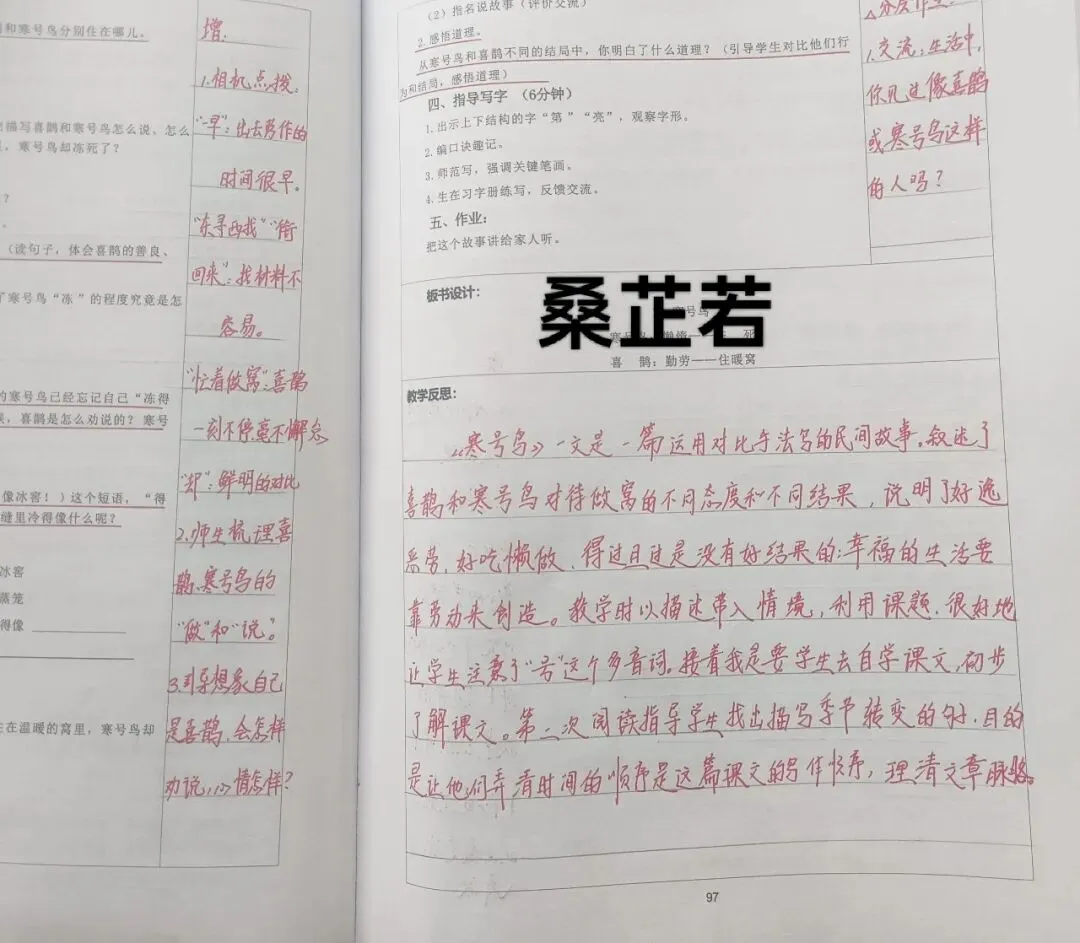 和寒号鸟分别住在哪儿。
描写喜鹊和寒号鸟怎么说、怎么
，寒号鸟却冻死了？
？
（读句子，体会喜鹊的善良、
了寒号鸟“冻”的程度究竟是怎
的寒号鸟已经忘记自己“冻得
，喜鹊是怎么劝说的？寒号
像冰窖！）这个短语，“得
缝里冷得像什么呢？
冰窖
蒸笼
得像
在温暖的窝里，寒号鸟却
增.
1.相机点拨：
“早”：出去劳作的
时间很早。
“东寻西找”“衔
回来”：找材料不
容易。
“忙着做窝”：喜鹊
一刻不停毫不懈怠
“却”：鲜明的对比
2.师生梳理喜
鹊、寒号鸟的
“做”和“说”。
3.引导想象自己
是喜鹊，会怎样
劝说，心情怎样？
（2）指名说故事（评价交流）
2.感悟道理。
从寒号鸟和喜鹊不同的结局中，你明白了什么道理？（引导学生对比他们行
为和结局，感悟道理）
四、指导写字 （6分钟）
1.出示上下结构的字“第”“亮”，观察字形。
2.编口诀趣记。
3.师范写，强调关键笔画。
4.生在习字册练写，反馈交流。
五、作业：
把这个故事讲给家人听。
1.交流：生活中，
你见过像喜鹊
或寒号鸟这样
的人吗？
板书设计：
桑芷若
号鸟
喜 鹊：勤劳——住暖窝
教学反思：
《寒号鸟》一文是一篇运用对比手法写的民间故事。叙述了
喜鹊和寒号鸟对待做窝的不同态度和不同结果，说明了好逸
恶劳，好吃懒做、得过且过是没有好结果的；幸福的生活要
靠劳动来创造。教学时以描述带入情境，利用课题，很好地
让学生注意了“号”这个多音词。接着我是要学生去自学课文，初步
了解课文。第二次阅读指导学生找出描写季节转变的句子，目的
是让他们弄清时间的顺序是这篇课文的写作顺序，理清文章脉络。
97